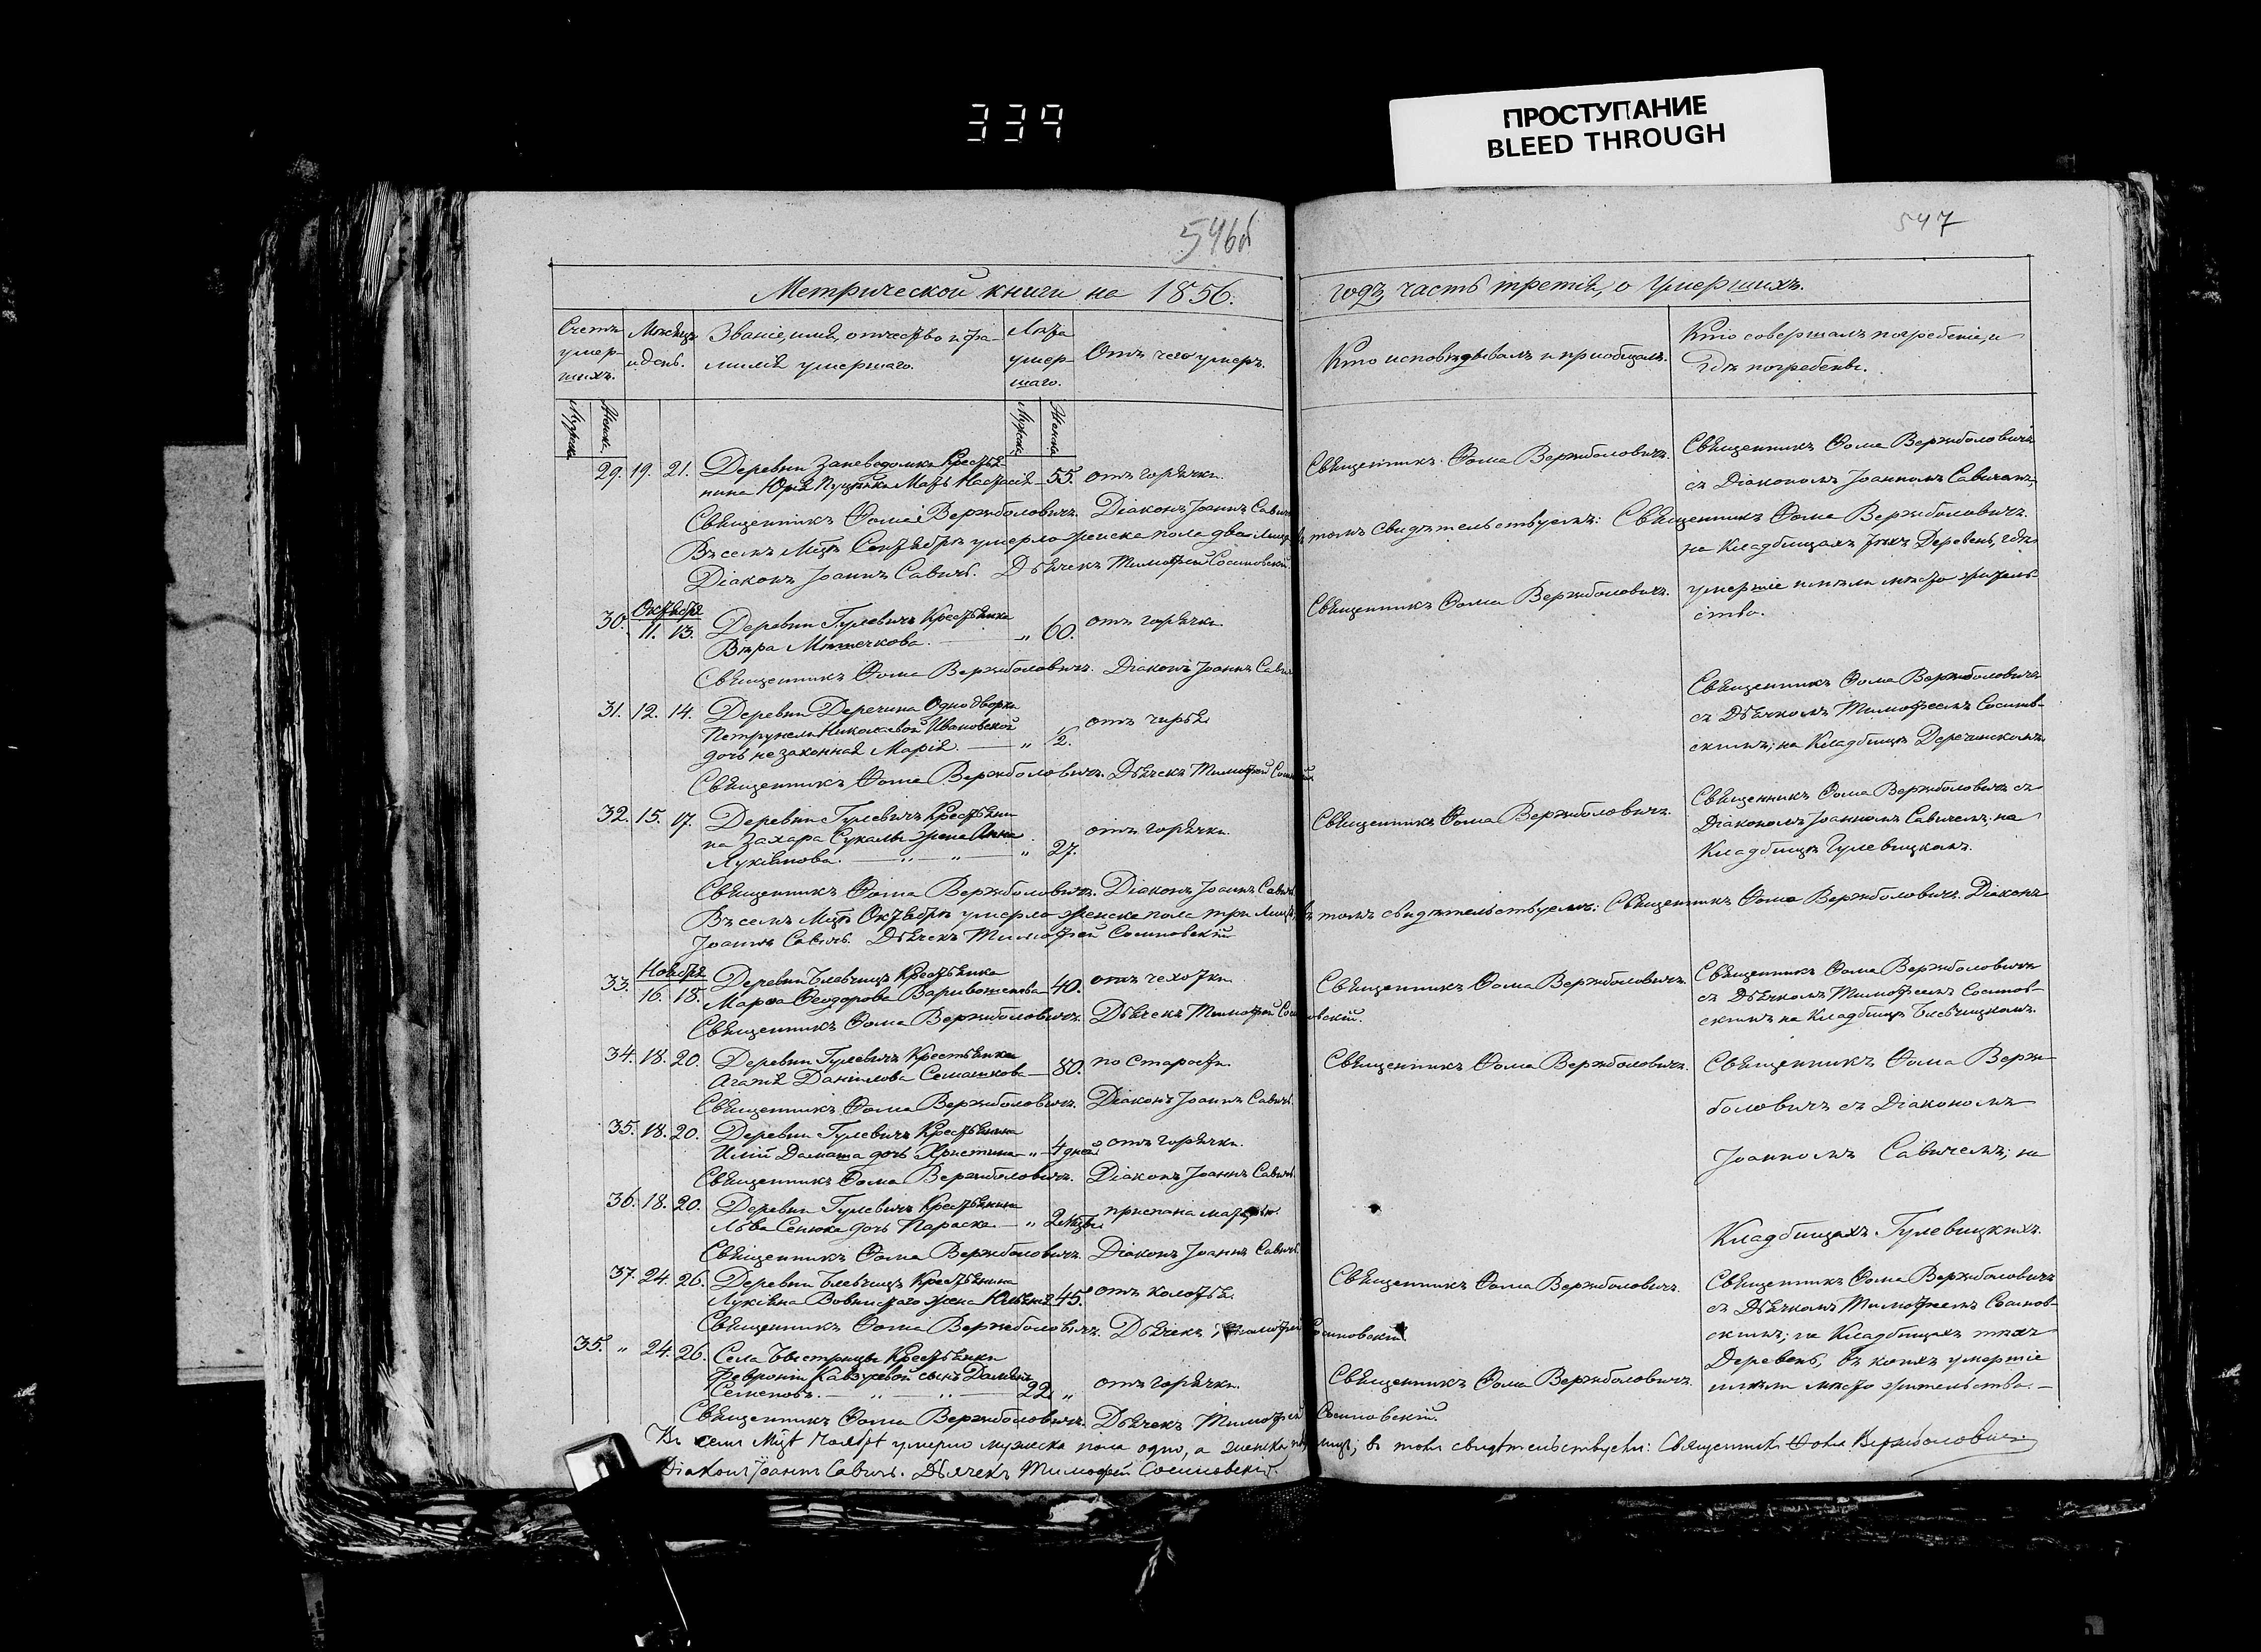 339
ПРОСТУПАНИЕ
BLEED THROUGH
546об
547
Метрической книги на 1856.
годъ, часть третія, о Умершихъ.
Счетъ умер-шихъ.
Мужска. Женска.
Мѣсяцъ и день.
Званіе, имя, отчество и фа-
милія умершаго.
Лѣта умер-шаго.
Мужска. Женска.
Отъ чего умеръ.
Кто исповѣдывалъ и пріобщалъ.
Кто совершалъ погребеніе, и
гдѣ погребены.
29. 19. 21. Деревни Крестья-
нина Юрія Мать Настасія 55. отъ горячки.
Священникъ Ѳома Вержболовичъ.
Священникъ Ѳома Вержболовичъ
съ Діакономъ Іоанномъ Савичемъ,
Священникъ Ѳома Вержболовичъ. Діаконъ Іоаннъ Савичъ
Въ семъ Мцѣ Сентябрѣ умерло женска пола два лица, въ томъ свидѣтельствуемъ: Священникъ Ѳома Вержболовичъ.
Діаконъ Іоаннъ Савичъ. Дьячекъ Тимофей Сосиновскій.
на Кладбищахъ тѣхъ Деревень, гдѣ
умершіе имѣли мѣсто житель-
ства.
Октября
30. 11. 13. Деревни Гулевичъ Крестьянка
Вѣра „ 60. отъ горячки
Священникъ Ѳома Вержболовичъ.
Священникъ Ѳома Вержболовичъ. Діаконъ Іоаннъ Савичъ
31. 12. 14. Деревни Деречина Однодворки
Петрунели Николаевой Ивановской
дочь незаконная Марія. „ ½. отъ чирья
Священникъ Ѳома Вержболовичъ
съ Дьячкомъ Тимофеемъ Сосинов-
скимъ; на Кладбищѣ Деречинскомъ.
Священникъ Ѳома Вержболовичъ. Дьячекъ Тимофей Сосиновскій
32. 15. 17. Деревни Гулевичъ Крестьяни-
на Захара Сукалы жена Анна
Лукіянова. „ „ „ 27. отъ горячки.
Священникъ Ѳома Вержболовичъ.
Священникъ Ѳома Вержболовичъ съ
Діакономъ Іоанномъ Савичемъ; на
Кладбищѣ Гулевицкомъ.
Священникъ Ѳома Вержболовичъ. Діаконъ Іоаннъ Савичъ
Въ семъ Мцѣ Октябрѣ умерло женска пола три лица, въ томъ свидѣтельствуемъ: Священникъ Ѳома Вержболовичъ. Діаконъ
Іоаннъ Савичъ. Дьячекъ Тимофей Сосиновскій
Ноября
33. 16. 18. Деревни Блевчицъ Крестьянка
Марѳа Ѳеодорова 40. отъ чехотки
Священникъ Ѳома Вержболовичъ
Священникъ Ѳома Вержболовичъ
съ Дьячкомъ Тимофеемъ Сосинов-
скимъ на Кладбищѣ Блевчицкомъ.
Священникъ Ѳома Вержболовичъ. Дьячекъ Тимофей Сосиновскій.
34. 18. 20. Деревни Гулевичъ Крестьянка
Агатія Даніилова Семашкова 80. по старости.
Священникъ Ѳома Вержболовичъ.
Священникъ Ѳома Верж-
боловичъ съ Діакономъ
Іоанномъ Савичемъ; на
Кладбищахъ Гулевицкихъ.
Священникъ Ѳома Вержболовичъ. Діаконъ Іоаннъ Савичъ.
35. 18. 20. Деревни Гулевичъ Крестьянина
Иліи дочь Христина „ 4 дней отъ горячки.
Священникъ Ѳома Вержболовичъ. Діаконъ Іоаннъ Савичъ.
36. 18. 20. Деревни Гулевичъ Крестьянина
Льва Сенюка дочь Параска „ 2 приспана матерью.
Священникъ Ѳома Вержболовичъ. Діаконъ Іоаннъ Савичъ.
37. 24. 26. Деревни Блевчицъ Крестьянина
Лукіяна жена 45. отъ колотья
Священникъ Ѳома Вержболовичъ.
Священникъ Ѳома Вержболовичъ
съ Дьячкомъ Тимофеемъ Сосинов-
скимъ; на Кладбищахъ тѣхъ
Деревень, въ коихъ умершіе
имѣли мѣсто жительства.
Священникъ Ѳома Вержболовичъ. Дьячекъ Тимофей Сосиновскій
35. „ 24. 26. Села Быстрицы Крестьянки
Февроніи сынъ
Семеновъ. „ „ 22. „ отъ горячки.
Священникъ Ѳома Вержболовичъ.
Священникъ Ѳома Вержболовичъ. Дьячекъ Тимофей Сосиновскій.
Въ семъ Мцѣ Ноябрѣ умерло мужска пола одно, а женска лицъ; въ томъ свидѣтельствуемъ: Священникъ Ѳома Вержболовичъ
Діаконъ Іоаннъ Савичъ. Дьячекъ Тимофей Сосиновскій.